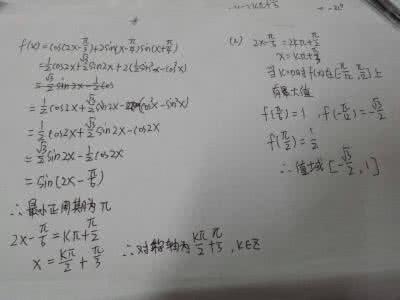 f(x)=cos(2x-π/3)+2sin(x-π/4)sin(x+π/4)
=1/2cos2x+√3/2sin2x+2(1/2sin²x-cos²x)
=1/2cos2x+√3/2sin2x-(cos²x-sin²x)
=1/2cos2x+√3/2sin2x-cos2x
=√3/2sin2x-1/2cos2x
=sin(2x-π/6)
∴最小正周期为π
2x-π/6=kπ+π/2
x=kπ/2+π/3
∴对称轴为kπ/2+π/3,k∈Z
(2) 2x-π/6=2kπ+π/2
x=kπ+π/3
当k=0时f(x)在[-π/12,π/2]上
有最大值
f(π/3)=1,f(-π/12)=-√3/2
f(π/2)=1/2
∴值域[-√3/2,1]